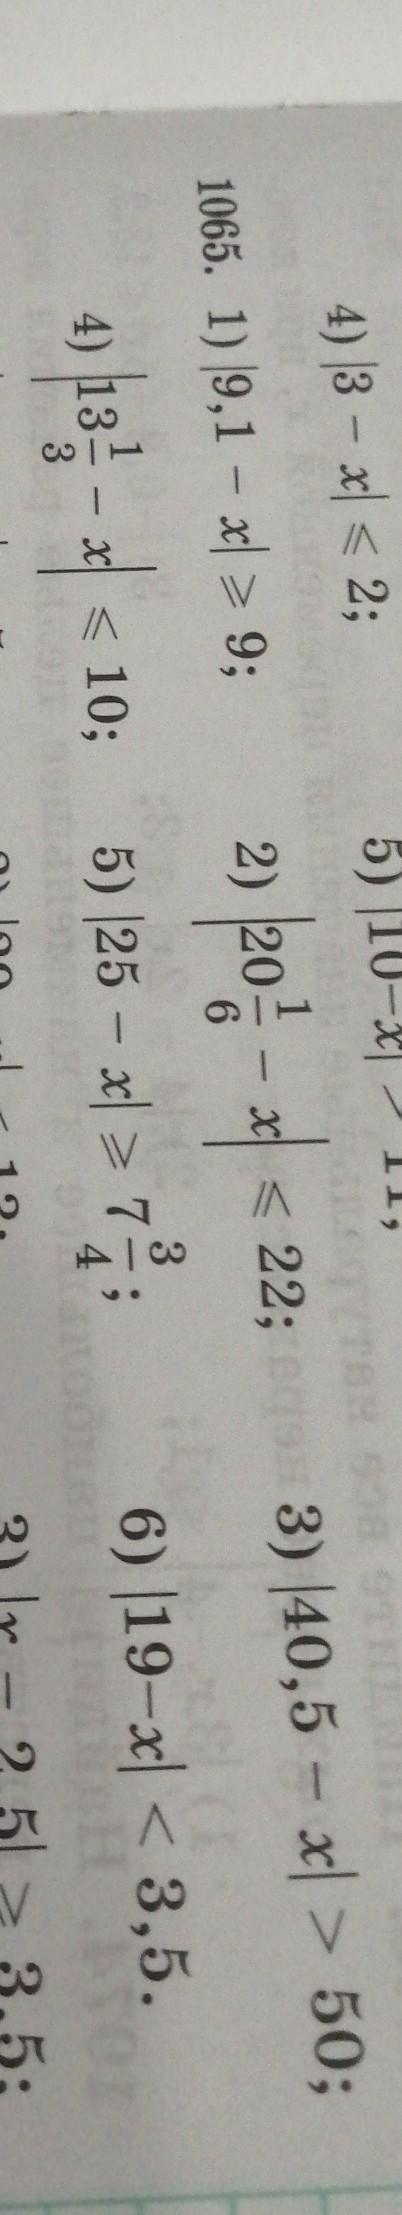 4) |3 − x| ⩽ 2; 5) |10−x| > 11;
1065. 1) |9,1 − x| ⩾ 9; 2) |20 1/6 − x| ⩽ 22; 3) |40,5 − x| > 50;
4) |13 1/3 − x| ⩽ 10; 5) |25 − x| ⩾ 7 3/4; 6) |19−x| < 3,5.
3) |x − 2,5| ⩾ 3,5;